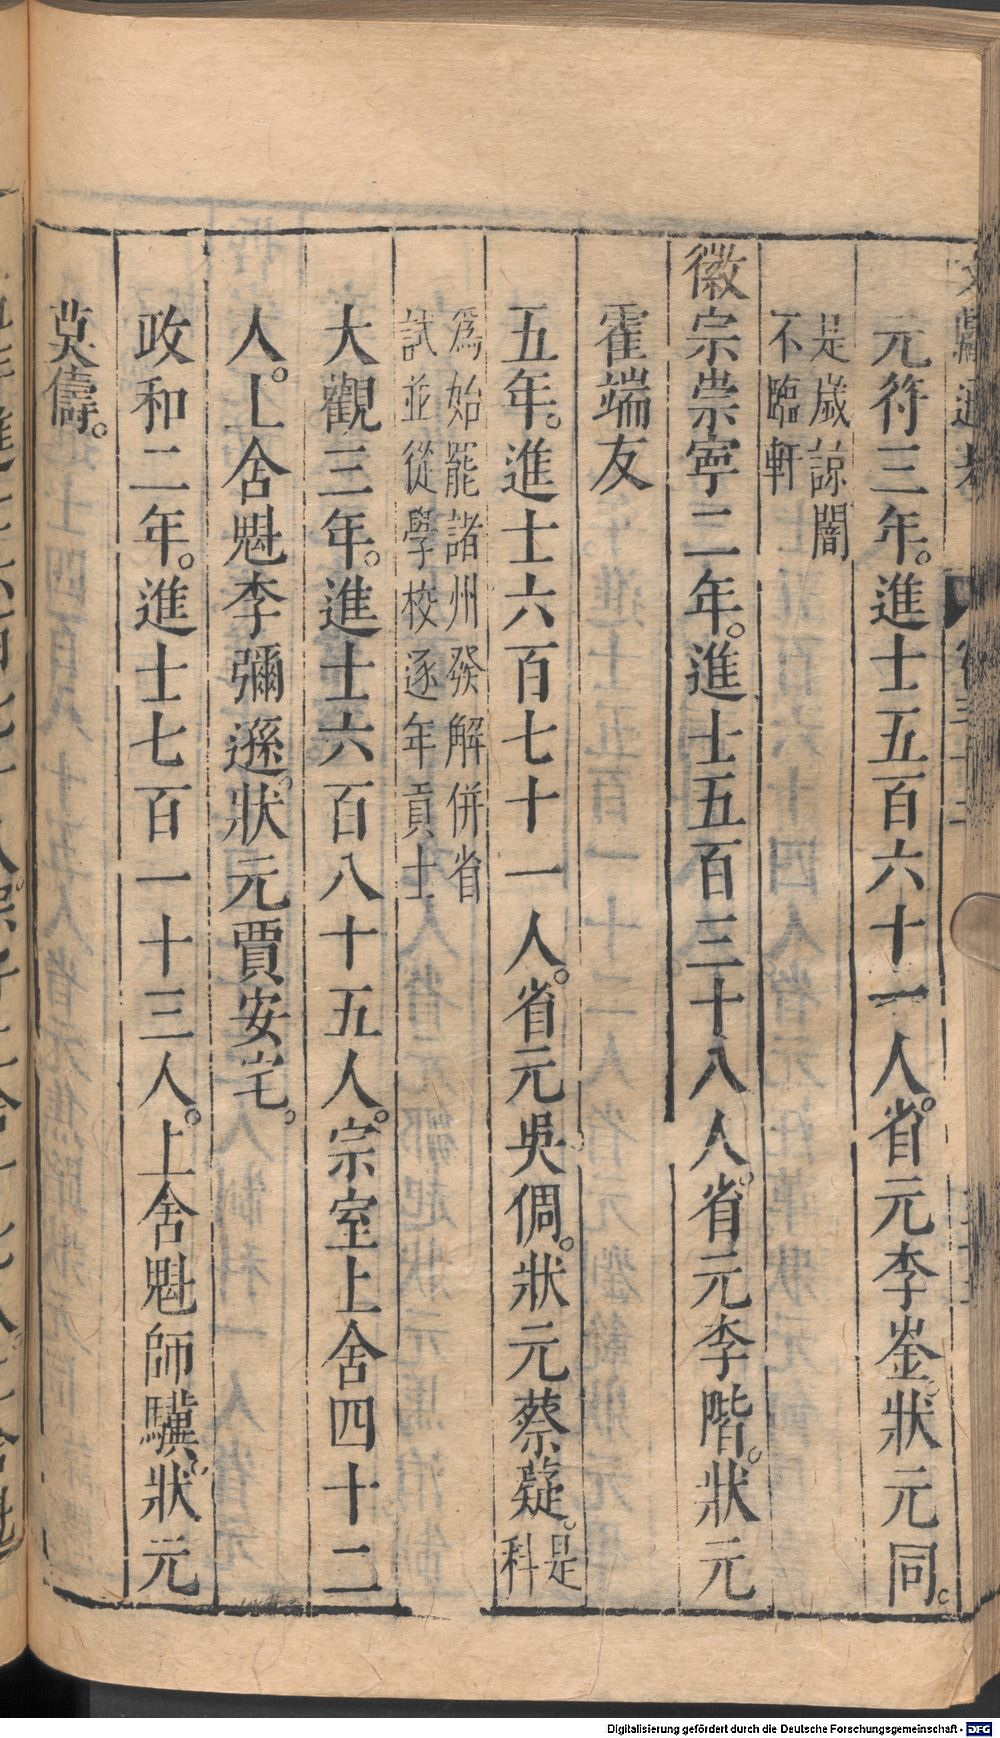 元符三年。進士五百六十一人。省元李崟。狀元同。
是歲諒闇
不臨軒
徽宗崇寧二年。進士五百三十八人。省元李階。狀元
霍端友
五年。進士六百七十一人。省元吳倜。狀元蔡薿。是
科
爲始罷諸州發解併省
試並從學校逐年貢士
大觀三年。進士六百八十五人。宗室上舍四十二
人。上舍魁李彌遜。狀元賈安宅。
政和二年。進士七百一十三人。上舍魁師驥。狀元
莫儔。
Digitalisierung gefördert durch die Deutsche Forschungsgemeinschaft - DFG